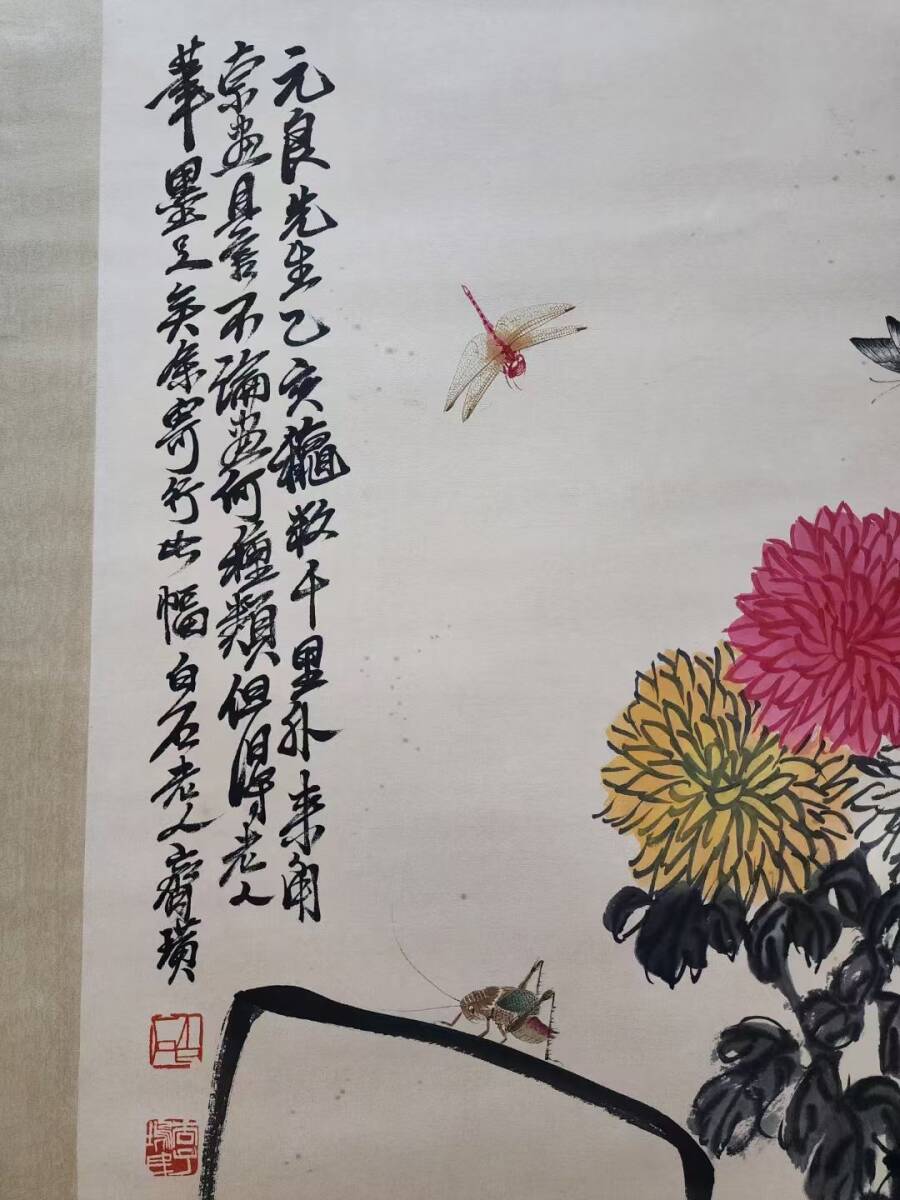 元良先生乙亥龝數千里外来函
索畫且言不論畫何種類但得老人
筆墨足矣余寄行此幅白石老人齊璜